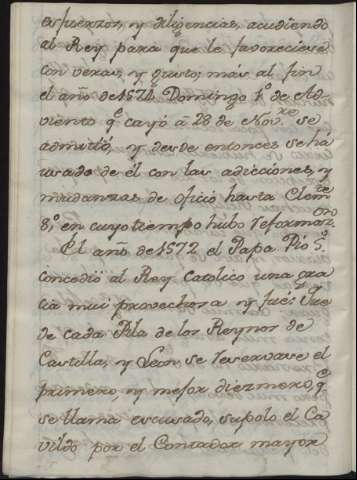 esfuerzos, y diligencias, acudiendo
al Rey para que le favoreciese
con veras, y gusto; más al fin
el año de 1574 Domingo 1.º de Ad-
viento q.e cayó á 28 de Nov.re se
admitió, y desde entonces se há
usado de él con las adicciones, y
mudanzas de oficio hasta Clem.te
8.º en cuyo tiempo húbo reformaz.on
El año de 1572 el Papa Pio 5.º
concedió al Rey Catolico una gra
cia mui provechosa y fué: Que
de cada Pila de los Reynos de
Castilla, y Leon se reservase el
primero, y mejor diezmero, q.e
se llama escusado, supolo el Ca
vildo por el Contador mayor